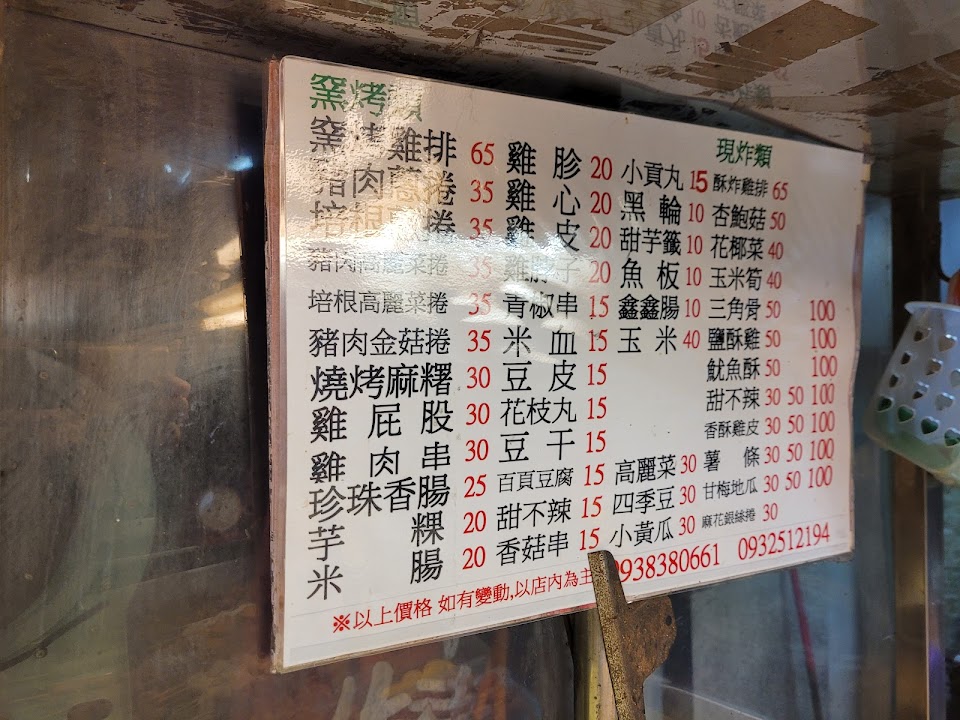 窯烤類
窯烤雞排 65
豬肉蔥捲 35
培根 捲 35
豬肉高麗菜捲 35
培根高麗菜捲 35
豬肉金菇捲 35
燒烤麻糬 30
雞屁股 30
雞肉串 30
珍珠香腸 25
芋粿 20
米腸 20
雞胗 20
雞心 20
雞皮 20
雞脖子 20
青椒串 15
米血 15
豆皮 15
花枝丸 15
豆干 15
百頁豆腐 15
甜不辣 15
香菇串 15
小貢丸 15
黑輪 10
甜芋籤 10
魚板 10
鑫鑫腸 10
玉米 40
高麗菜 30
四季豆 30
小黃瓜 30
現炸類
酥炸雞排 65
杏鮑菇 50
花椰菜 40
玉米筍 40
三角骨 50 100
鹽酥雞 50 100
魷魚酥 50 100
甜不辣 30 50 100
香酥雞皮 30 50 100
薯條 30 50 100
甘梅地瓜 30 50 100
麻花銀絲捲 30
※以上價格 如有變動,以店內為主
0938380661 0932512194